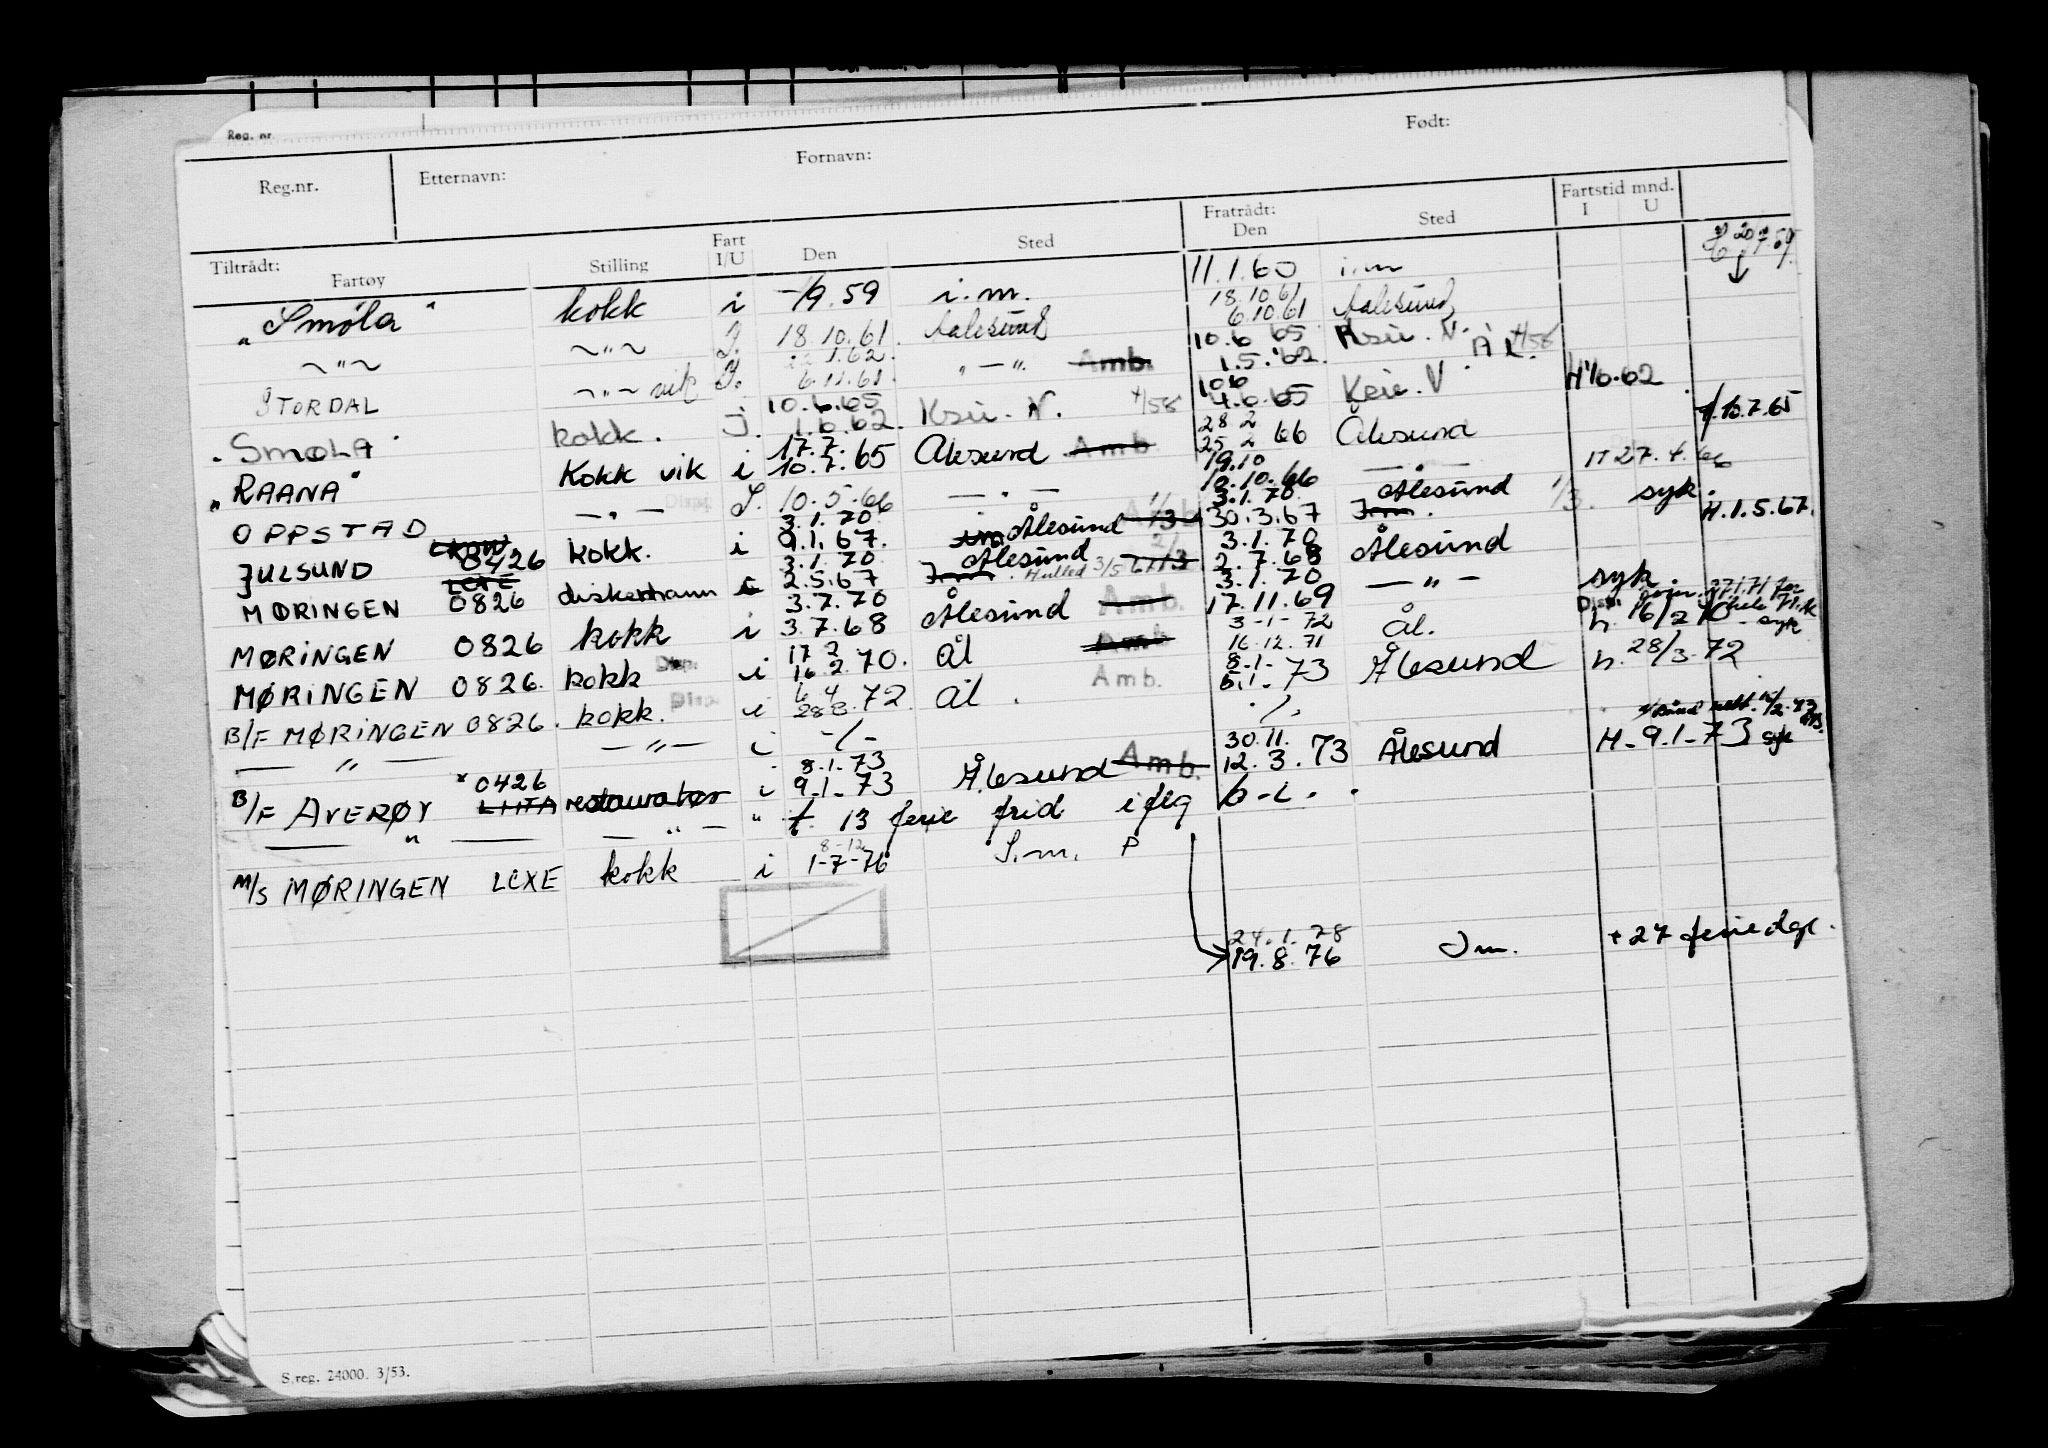 Reg. nr.
Reg.nr. Etternavn: Fornavn: Født:
Tiltrådt: Fartøy Stilling Fart I/U Den Sted Fratrådt: Den Sted Fartstid mnd. I U
"Smöla" kokk i -/9.59 i.m. 11.1.60 i.m
~"~ ~"~ I. 18.10.61. Aalesund 18.10.61 6.10.61 Aalesund
STORDAL ~"~ vik I. 1.62. 6.11.61. " — ". Amb. 10.6 65 1.5.'62. Ksu. N.
"SMØLA" kokk. i. 10.6.65 1.6.62. Ksu. N. 10.6 4.6.65 H 1/6.62
"RAANA" Kokk vik i 17.7. 10.7.65 Ålesund Amb. 28 2 25 2 66 Ålesund H. 10.7.65
OPPSTAD — " — I. 10.5.66 — " — 19.10 10.10.66 — — 27.4.66
JULSUND 0426 kokk. i 3.1.70 9.1.67. Ålesund 1/3 3.1.70. 30.3.67 Ålesund 1/3. syk.
MØRINGEN LCXE 0826 3.1.70 2.5.67 Ålesund 3.1.70 2.7.68 Ålesund H.1.5.67.
MØRINGEN 0826 kokk i 3.7.70 3.7.68 Ålesund Amb. 3.1.70 17.11.69 — " — syk.
MØRINGEN 0826. kokk Disp. i 17 2 16.2.70. Ål Amb 3-1-72 16.12.71 Ål. h. 16/2 70
B/F MØRINGEN 0826. kokk. Disp. i 6 4 28 3.72 Ål. Amb. 8.1. 5.1.73 Ålesund h. 28/3.72
— " — — " — i -/- ./.
B/F AVERØY 0426 restauratør i 8.1.73 9.1.73 Ålesund Amb. 30.11. 12.3.73 Ålesund H. 9.1.73 syk
— " — — " — " 13 ferie frid
M/S MØRINGEN LCXE kokk i 8-12 1-7-76 I.m. P
24.1.78 19.8.76 Im. + 27 feriedge.
S.reg. 24000. 3/53.